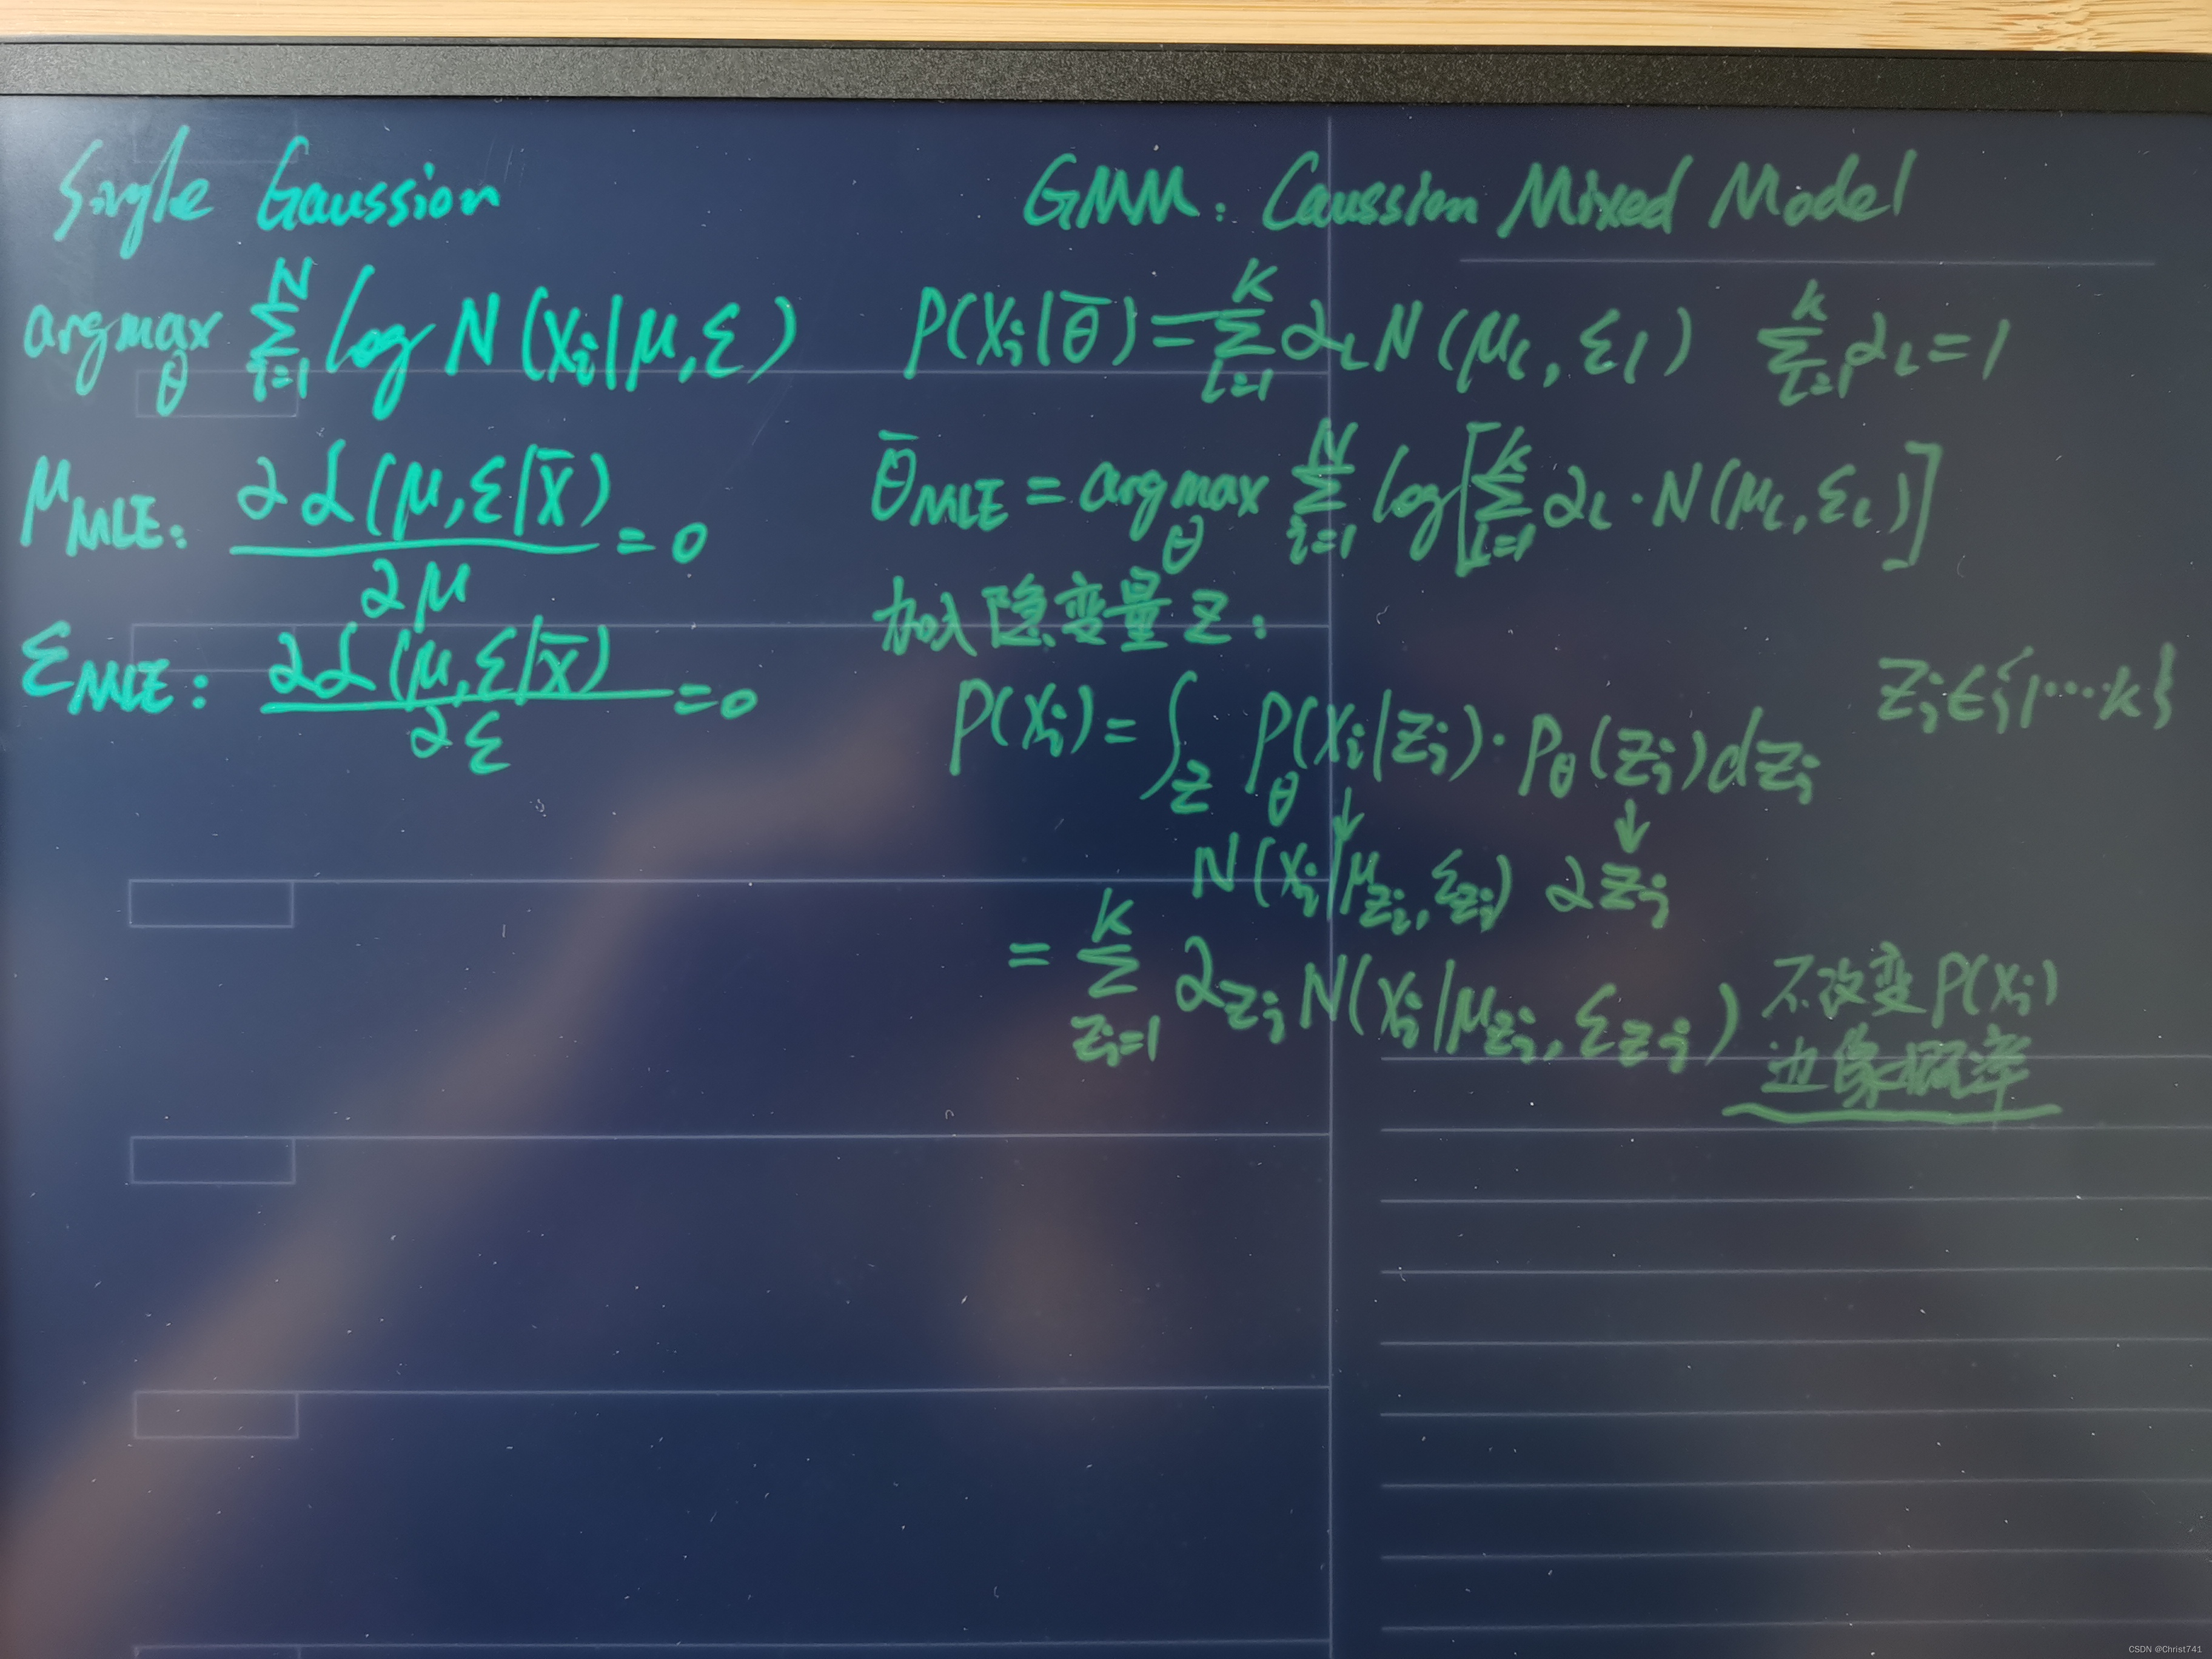 Single Gaussion
argmax_θ Σ_{i=1}^{N} log N(x_i|μ,Σ)
μ_MLE: ∂ℒ(μ,Σ|x̄)/∂μ = 0
Σ_MLE: ∂ℒ(μ,Σ|x̄)/∂Σ = 0
GMM: Gaussion Mixed Model
P(x_i|θ̄) = Σ_{l=1}^{k} α_l N(μ_l, Σ_l) Σ_{l=1}^{k} α_l = 1
θ̄_MLE = argmax_θ Σ_{i=1}^{N} log[Σ_{l=1}^{k} α_l · N(μ_l, Σ_l)]
加入隐变量 z:
P(x_i) = ∫_z P_θ(x_i|z_i) · P_θ(z_i) dz_i z_i∈{1…k}
↓ ↓
N(x_i|μ_{z_i}, Σ_{z_i}) α_{z_i}
= Σ_{z_i=1}^{k} α_{z_i} N(x_i|μ_{z_i}, Σ_{z_i}) 不改变P(x_i)
边缘概率
CSDN @Christ741